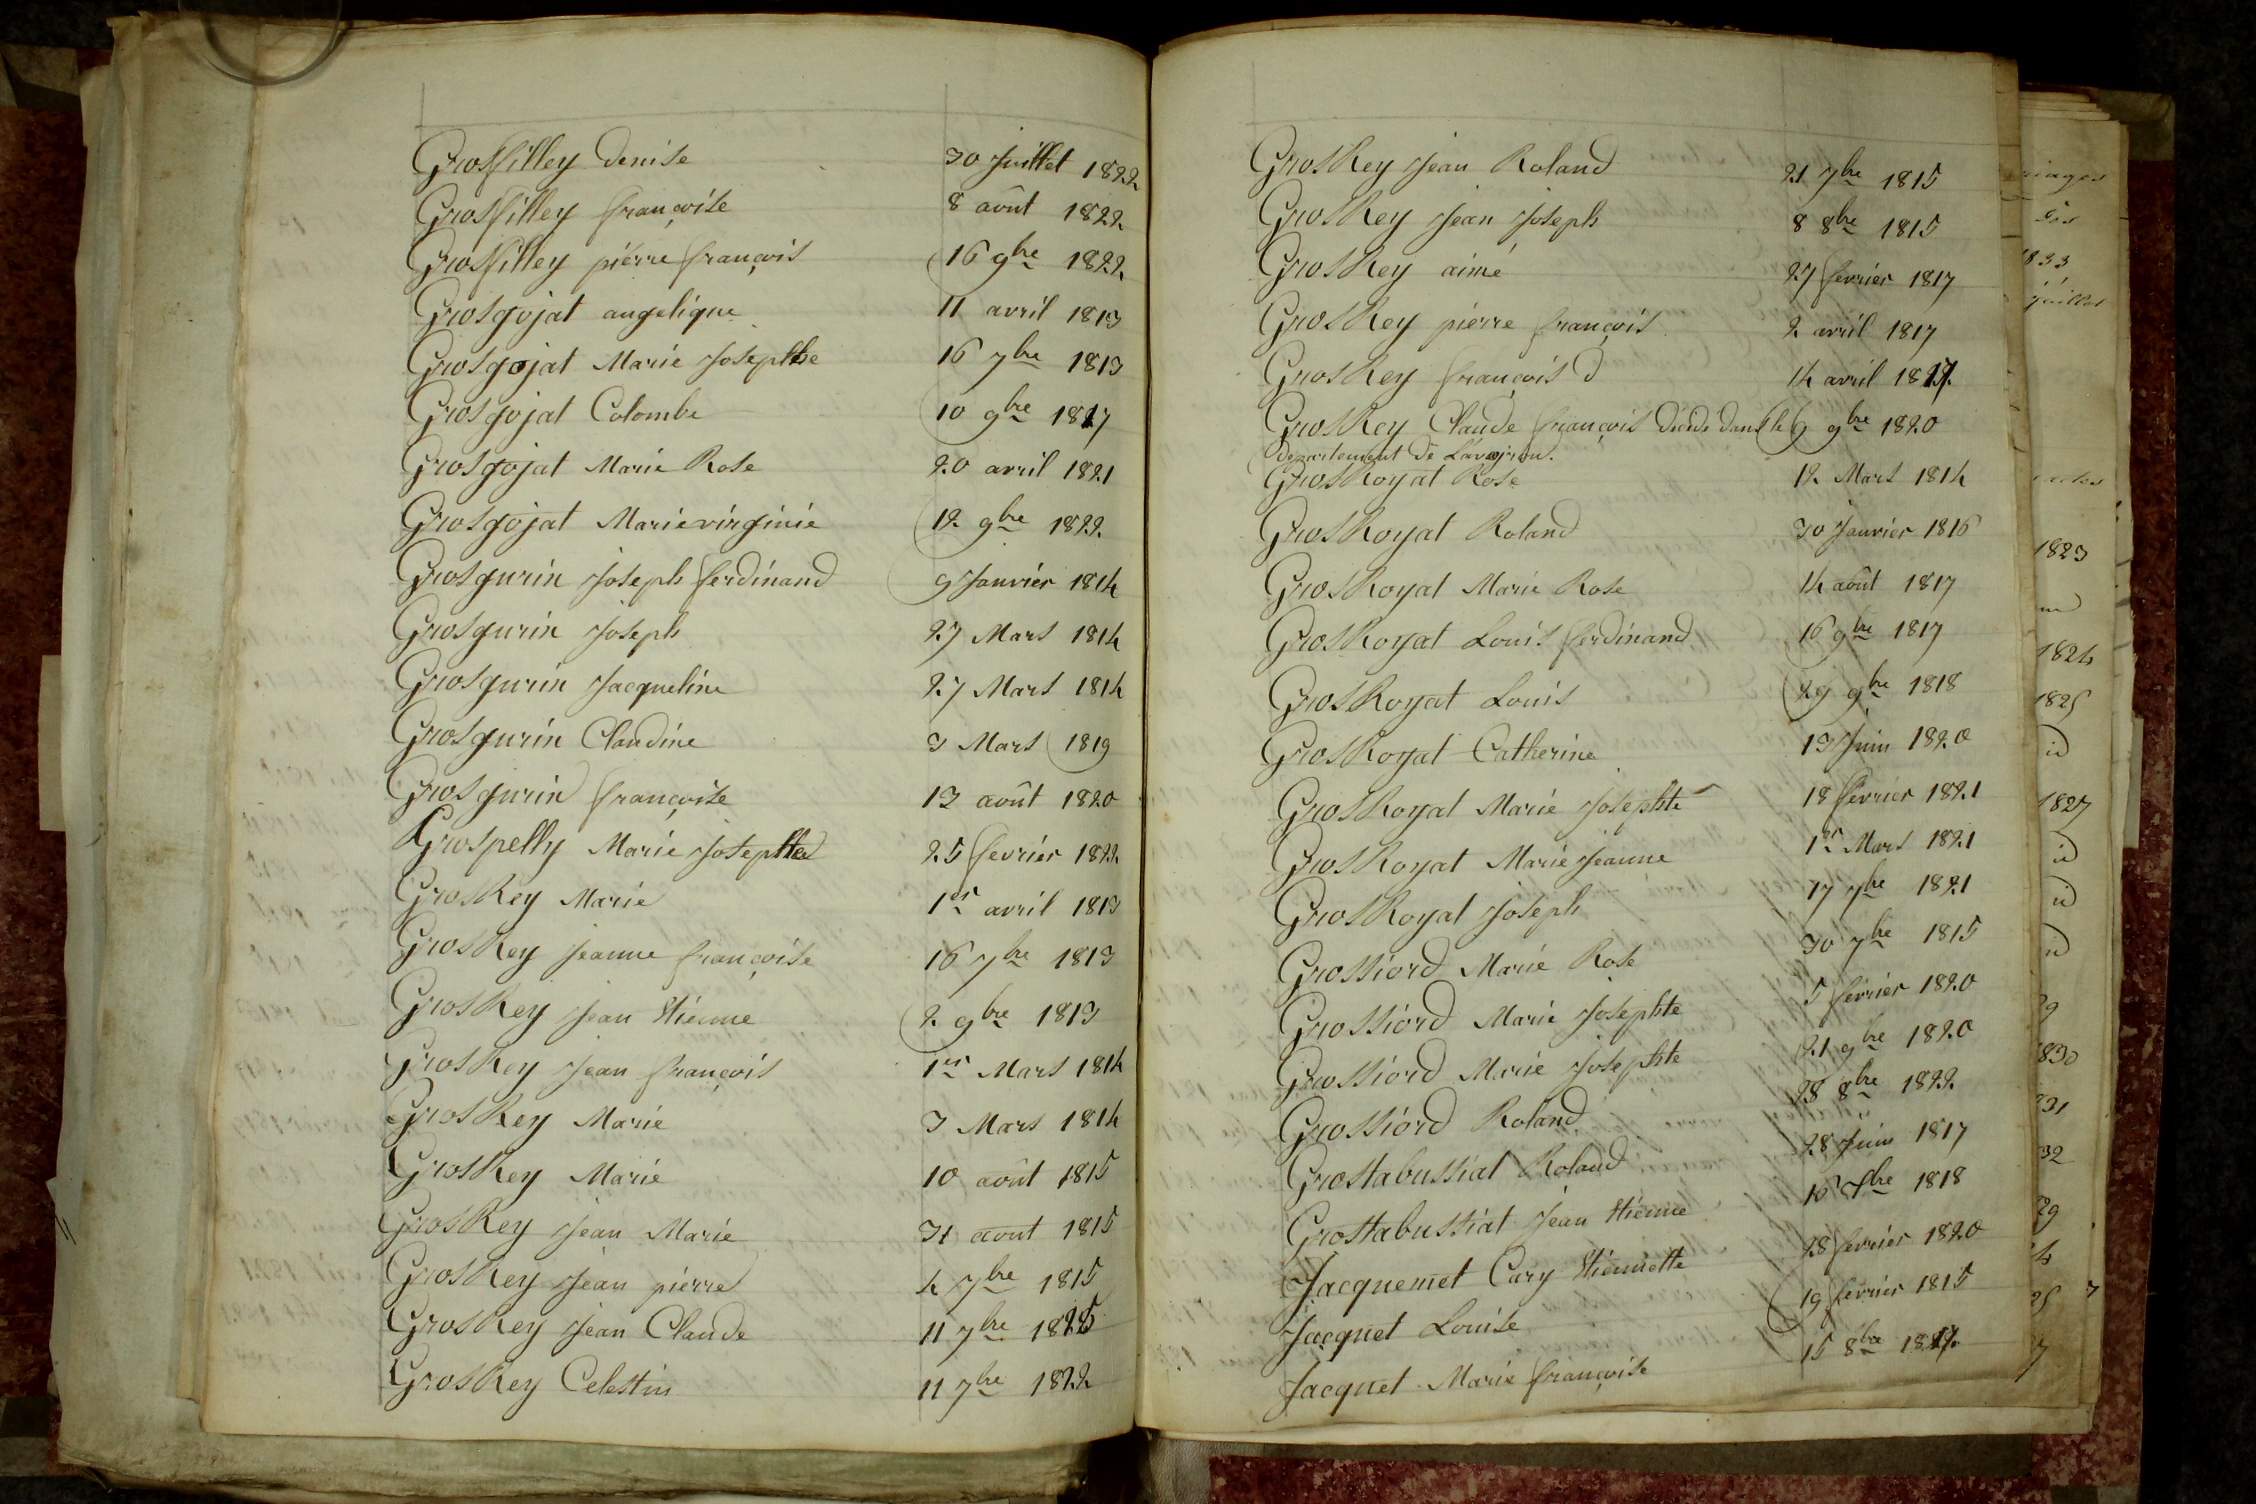 Grosfilley denise 30 Juillet 1822
Grosfilley françoise 8 août 1822
Grosfilley pierre françois 16 9bre 1822
Grosgojat angelique 11 avril 1813
Grosgojat Marie Josephte 16 7bre 1813
Grosgojat Colombe 10 9bre 1817
Grosgojat Marie Rose 20 avril 1821
Grosgojat Marie virginie 12 9bre 1822
Grosgurin Joseph ferdinand 9 Janvier 1814
Grosgurin Joseph 27 Mars 1814
Grosgurin Jacqueline 27 Mars 1814
Grosgurin Claudine 3 Mars 1819
Grosgurin françoise 13 août 1820
Grospelly Marie Josephte 25 fevrier 1822
GrosRey Marie 1er avril 1813
GrosRey Jeanne françoise 16 7bre 1813
GrosRey Jean Etienne 2 9bre 1813
GrosRey Jean françois 1er Mars 1814
GrosRey Marie 3 Mars 1814
GrosRey Marie 10 août 1815
GrosRey Jean Marie 31 aout 1815
GrosRey Jean pierre 4 7bre 1815
GrosRey Jean Claude 11 7bre
GrosRey Celestin 11 7bre 1822
GrosRey Jean Roland 21 7bre 1815
GrosRey Jean Joseph 8 8bre 1815
GrosRey aimé 27 fevrier 1817
GrosRey pierre françois 2 avril 1817
GrosRey françois d 14 avril
GrosRey Claude françois décédé dans le 6 9bre 1820
departement de L'aveyron.
GrosRoyat Rose 12 Mars 1814
GrosRoyat Roland 30 Janvier 1816
GrosRoyat Marie Rose 14 août 1817
GrosRoyat Louis ferdinand 16 9bre 1817
GrosRoyat Louis 29 9bre 1818
GrosRoyat Catherine 13 Juin 1820
GrosRoyat Marie Josephte 18 fevrier 1821
GrosRoyat Marie Jeanne 1er Mars 1821
GrosRoyat Joseph 17 7bre 1821
Grossiord Marie Rose 30 7bre 1815
Grossiord Marie Josephte 5 fevrier 1820
Grossiord Marie Josephte 21 9bre 1820
Grossiord Roland 28 8bre 1822
Grostabussiat Roland 28 Juin 1817
Grostabussiat Jean Etienne 16 7bre 1818
Jacquemet Cary Etiennette 28 fevrier 1820
Jacquet Louise 19 fevrier 1815
Jacquet Marie françoise 15 8bre
1833
juillet
1823
1824
1825
id
1827
id
id
id